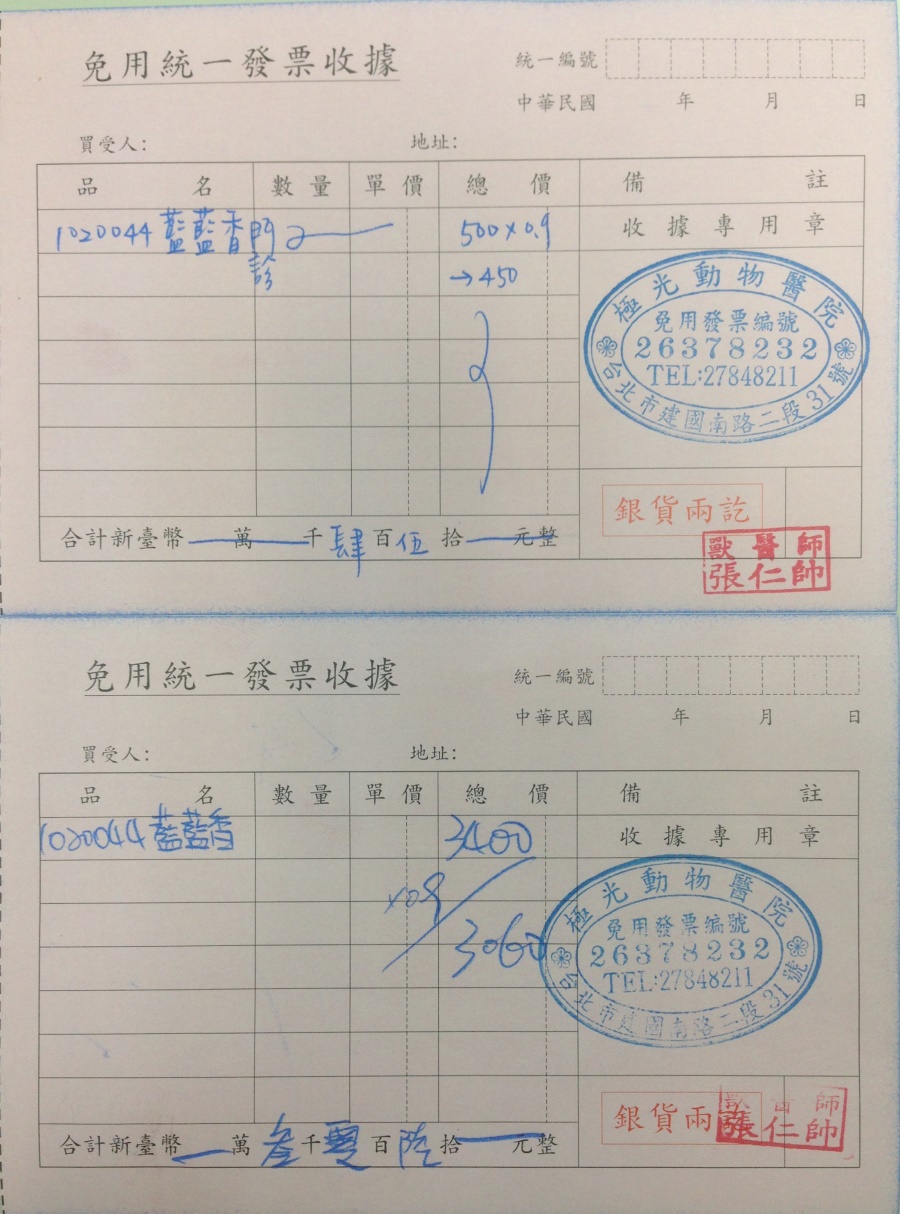 免用統一發票收據
統一編號
中華民國 年 月 日
買受人： 地址：
品 名 數量 單價 總 價 備 註
1020044 藍藍香 門診 500×0.9
收據專用章
→450
極光動物醫院
免用發票編號
26378232
TEL:27848211
台北市建國南路二段31號
銀貨兩訖
合計新臺幣 萬 千肆百伍拾 元整
獸醫師
張仁帥
免用統一發票收據
統一編號
中華民國 年 月 日
買受人： 地址：
品 名 數量 單價 總 價 備 註
1020044 藍藍香 3400
收據專用章
×0.9
3060
極光動物醫院
免用發票編號
26378232
TEL:27848211
台北市建國南路二段31號
銀貨兩訖
合計新臺幣 萬叁千零百陸拾 元整
獸醫師
張仁帥